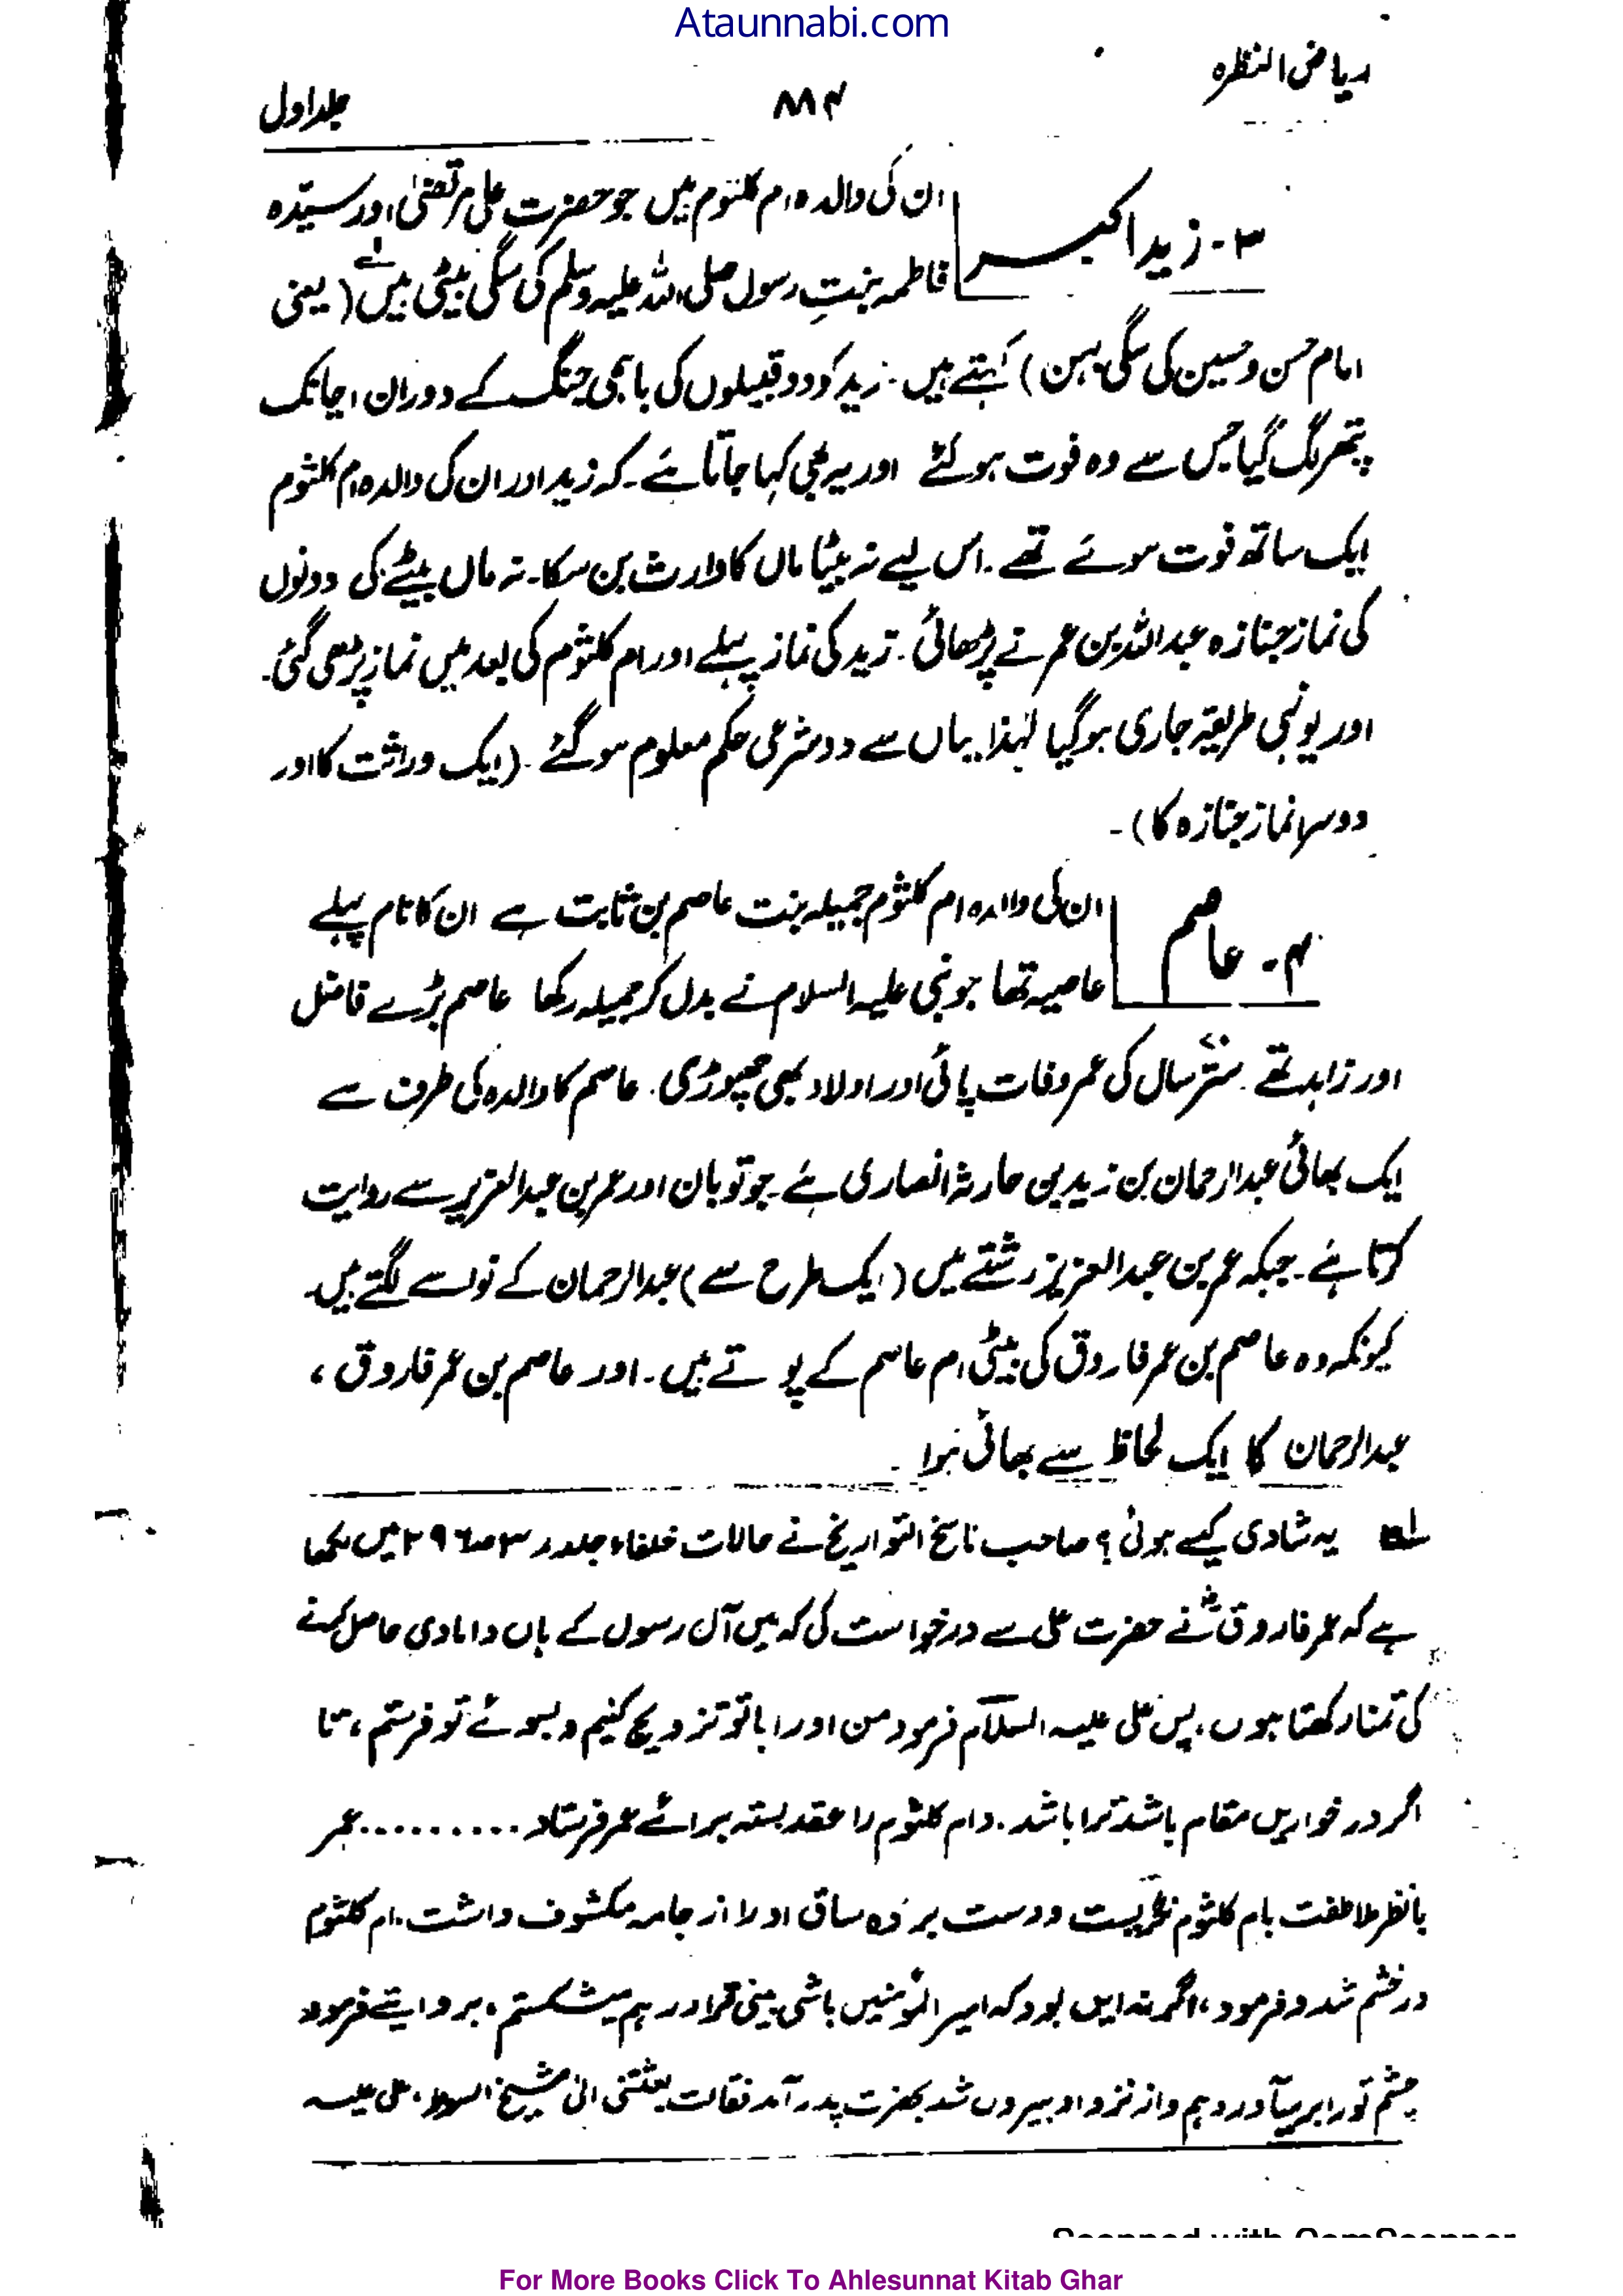 Ataunnabi.com
ریاض النظرہ
۸۸۴
جلد اول
۳۔ زید اکبر
ان کی والدہ ام کلثوم ہیں جو حضرت علی مرتضیٰ اور سیّدہ
فاطمہ بنتِ رسول صلی اللہ علیہ وسلم کی سگی بیٹی ہیں لے (یعنی
امام حسن و حسین کی سگی بہن) کہتے ہیں۔ زید کو دو قبیلوں کی باہمی جنگ کے دوران اچانک
پتھر لگ گیا جس سے وہ فوت ہو گئے اور یہ بھی کہا جاتا ہے۔ کہ زید اور ان کی والدہ ام کلثوم
ایک ساتھ فوت ہوئے تھے۔ اس لیے نہ بیٹا ماں کا وارث بن سکا۔ نہ ماں بیٹے کی دونوں
کی نماز جنازہ عبداللہ بن عمر نے پڑھائی۔ زید کی نماز پہلے اور ام کلثوم کی بعد میں نماز پڑھی گئی۔
اور یونہی طریقہ جاری ہوگیا لہٰذا یہاں سے دو شرعی حکم معلوم ہو گئے۔ (ایک وراثت کا اور
دوسرا نماز جنازہ کا)۔
۴۔ عاصم
ان کی والدہ ام کلثوم جمیلہ بنت عاصم بن ثابت ہے ان کا نام پہلے
عاصیہ تھا جو نبی علیہ السلام نے بدل کر جمیلہ رکھا عاصم بڑے فاضل
اور زاہد تھے۔ ستّر سال کی عمر وفات پائی اور اولاد بھی چھوڑی۔ عاصم کا والدہ کی طرف سے
ایک بھائی عبدالرحمان بن زید بن حارثہ انصاری ہے۔ جو ثوبان اور عمر بن عبدالعزیز سے روایت
کرتا ہے۔ جبکہ عمر بن عبدالعزیز رشتے میں (ایک طرح سے) عبدالرحمان کے نواسے لگتے ہیں۔
کیونکہ وہ عاصم بن عمر فاروق کی بیٹی ام عاصم کے پوتے ہیں۔ اور عاصم بن عمر فاروق ،
عبدالرحمان کا ایک لحاظ سے بھائی ہوا۔
لے یہ شادی کیسے ہوئی ؟ صاحب ناسخ التواریخ نے حالات خلفاء جلد ۳ ص ۲۹۶ میں لکھا
ہے کہ عمر فاروق نے حضرت علی سے درخواست کی کہ میں آل رسول کے ہاں دامادی حاصل کرنے
کی تمنا رکھتا ہوں، پس علی علیہ السلام فرمود من اورا با تو تزویج کنیم و بسوئے تو فرستم، تا
اگر در خور ایں مقام باشد ترا باشد۔ و ام کلثوم را عقد بستہ برائے عمر فرستاد ......... عمر
با نظر ملاطفت بام کلثوم نگریست و دست بردہ ساق او را از جامہ مکشوف داشت۔ ام کلثوم
در خشم شد و فرمود، اگر نہ ایں بود کہ امیر المؤمنیں باشی بینی ترا در ہم میشکستم، بروایتے فرمود
چشم تو را بر میآوردہم و از نزد او بیروں شد بحضرت پدر آمد فقالت بعثتنی الیٰ شیخ السوء، علی علیہ
For More Books Click To Ahlesunnat Kitab Ghar